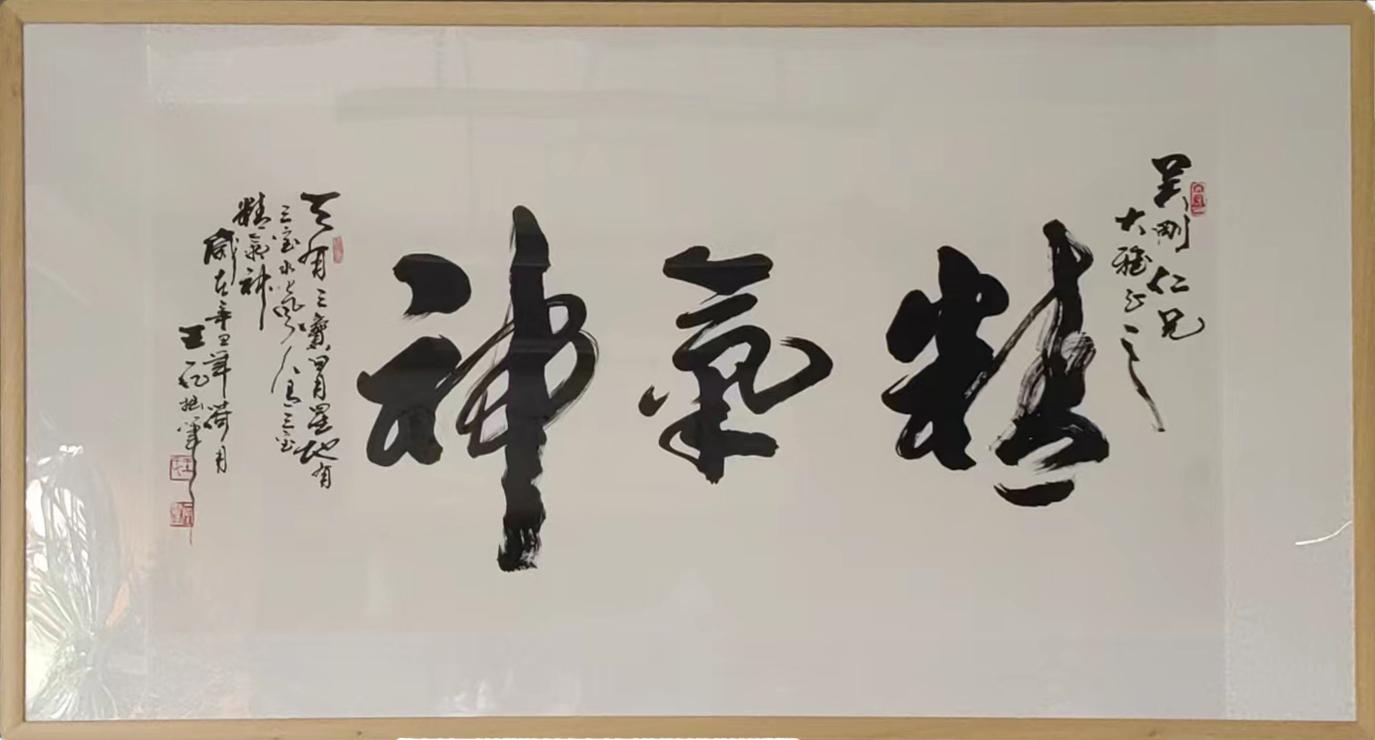 吴刚仁兄
大雅正之
精氣神
天有三寳日月星地有
三宝水火風人有三宝
精氣神
歲在辛丑年荷月
王 拙筆